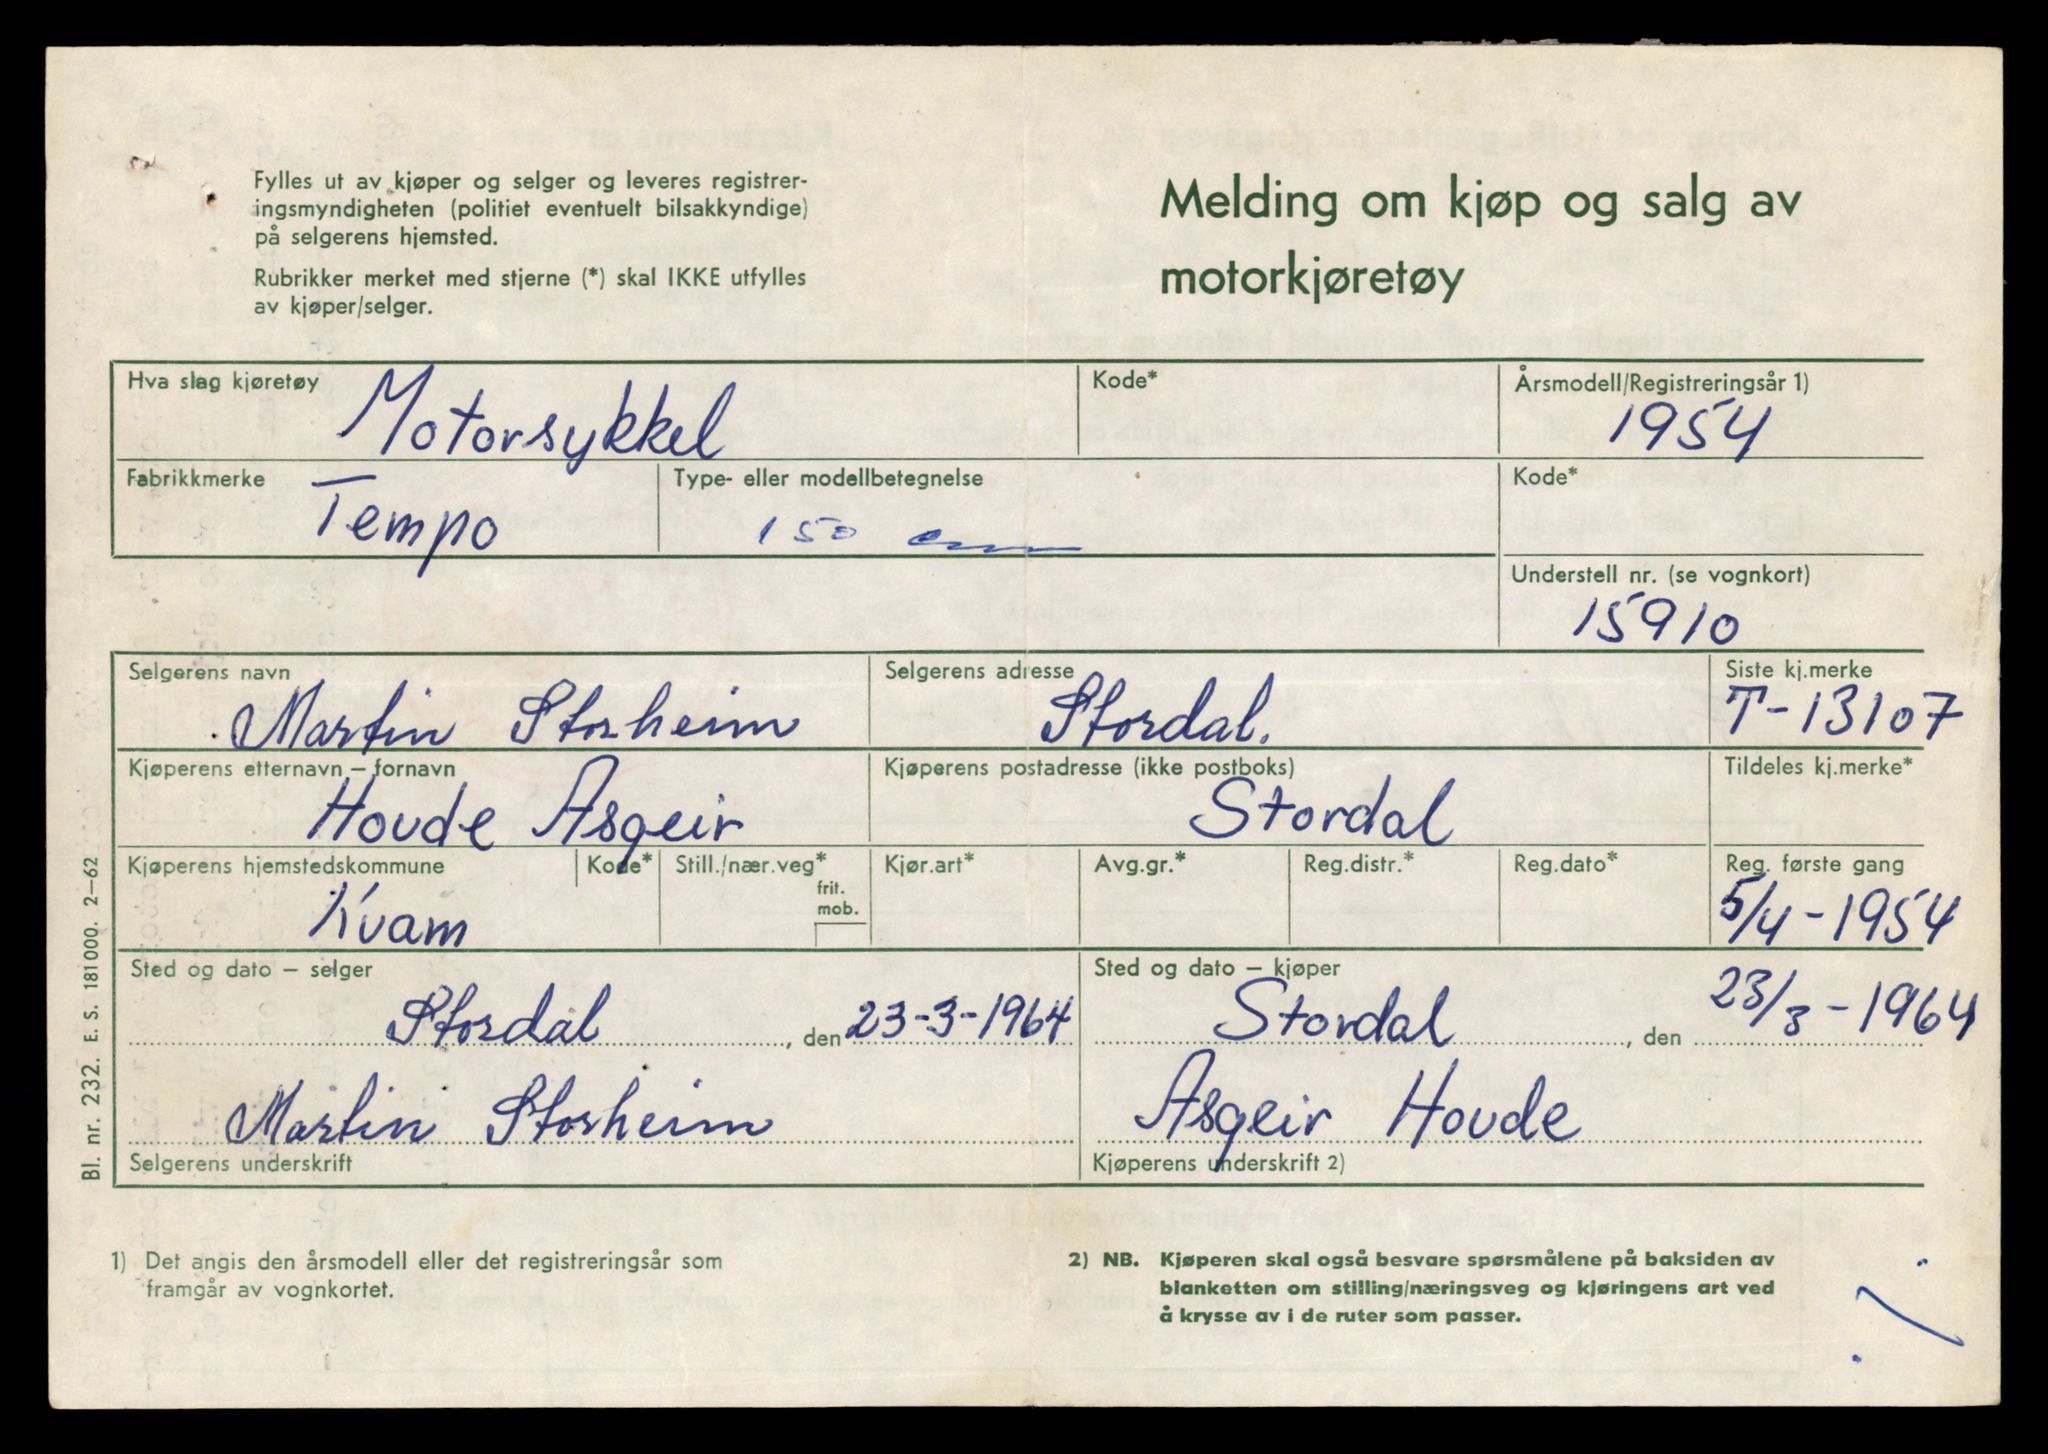 Fylles ut av kjøper og selger og leveres registrer-
ingsmyndigheten (politiet eventuelt bilsakkyndige)
på selgerens hjemsted.
Rubrikker merket med stjerne (*) skal IKKE utfylles
av kjøper/selger.
Melding om kjøp og salg av
motorkjøretøy
Hva slag kjøretøy
Motorsykkel
Kode*
Årsmodell/Registreringsår 1)
1954
Fabrikkmerke
Tempo
Type- eller modellbetegnelse
150
Kode*
Understell nr. (se vognkort)
15910
Selgerens navn
Martin Storheim
Selgerens adresse
Stordal.
Siste kj.merke
T-13107
Kjøperens etternavn – fornavn
Hovde Asgeir
Kjøperens postadresse (ikke postboks)
Stordal
Tildeles kj.merke*
Kjøperens hjemstedskommune
Kvam
Kode*
Still./nær.veg*
frit.
mob.
Kjør.art*
Avg.gr.*
Reg.distr.*
Reg.dato*
Reg. første gang
5/4-1954
Sted og dato – selger
Stordal, den 23-3-1964
Martin Storheim
Selgerens underskrift
Sted og dato – kjøper
Stordal, den 23/3-1964
Asgeir Hovde
Kjøperens underskrift 2)
Bl. nr. 232. E. S. 181000. 2–62
1) Det angis den årsmodell eller det registreringsår som
framgår av vognkortet.
2) NB. Kjøperen skal også besvare spørsmålene på baksiden av
blanketten om stilling/næringsveg og kjøringens art ved
å krysse av i de ruter som passer.